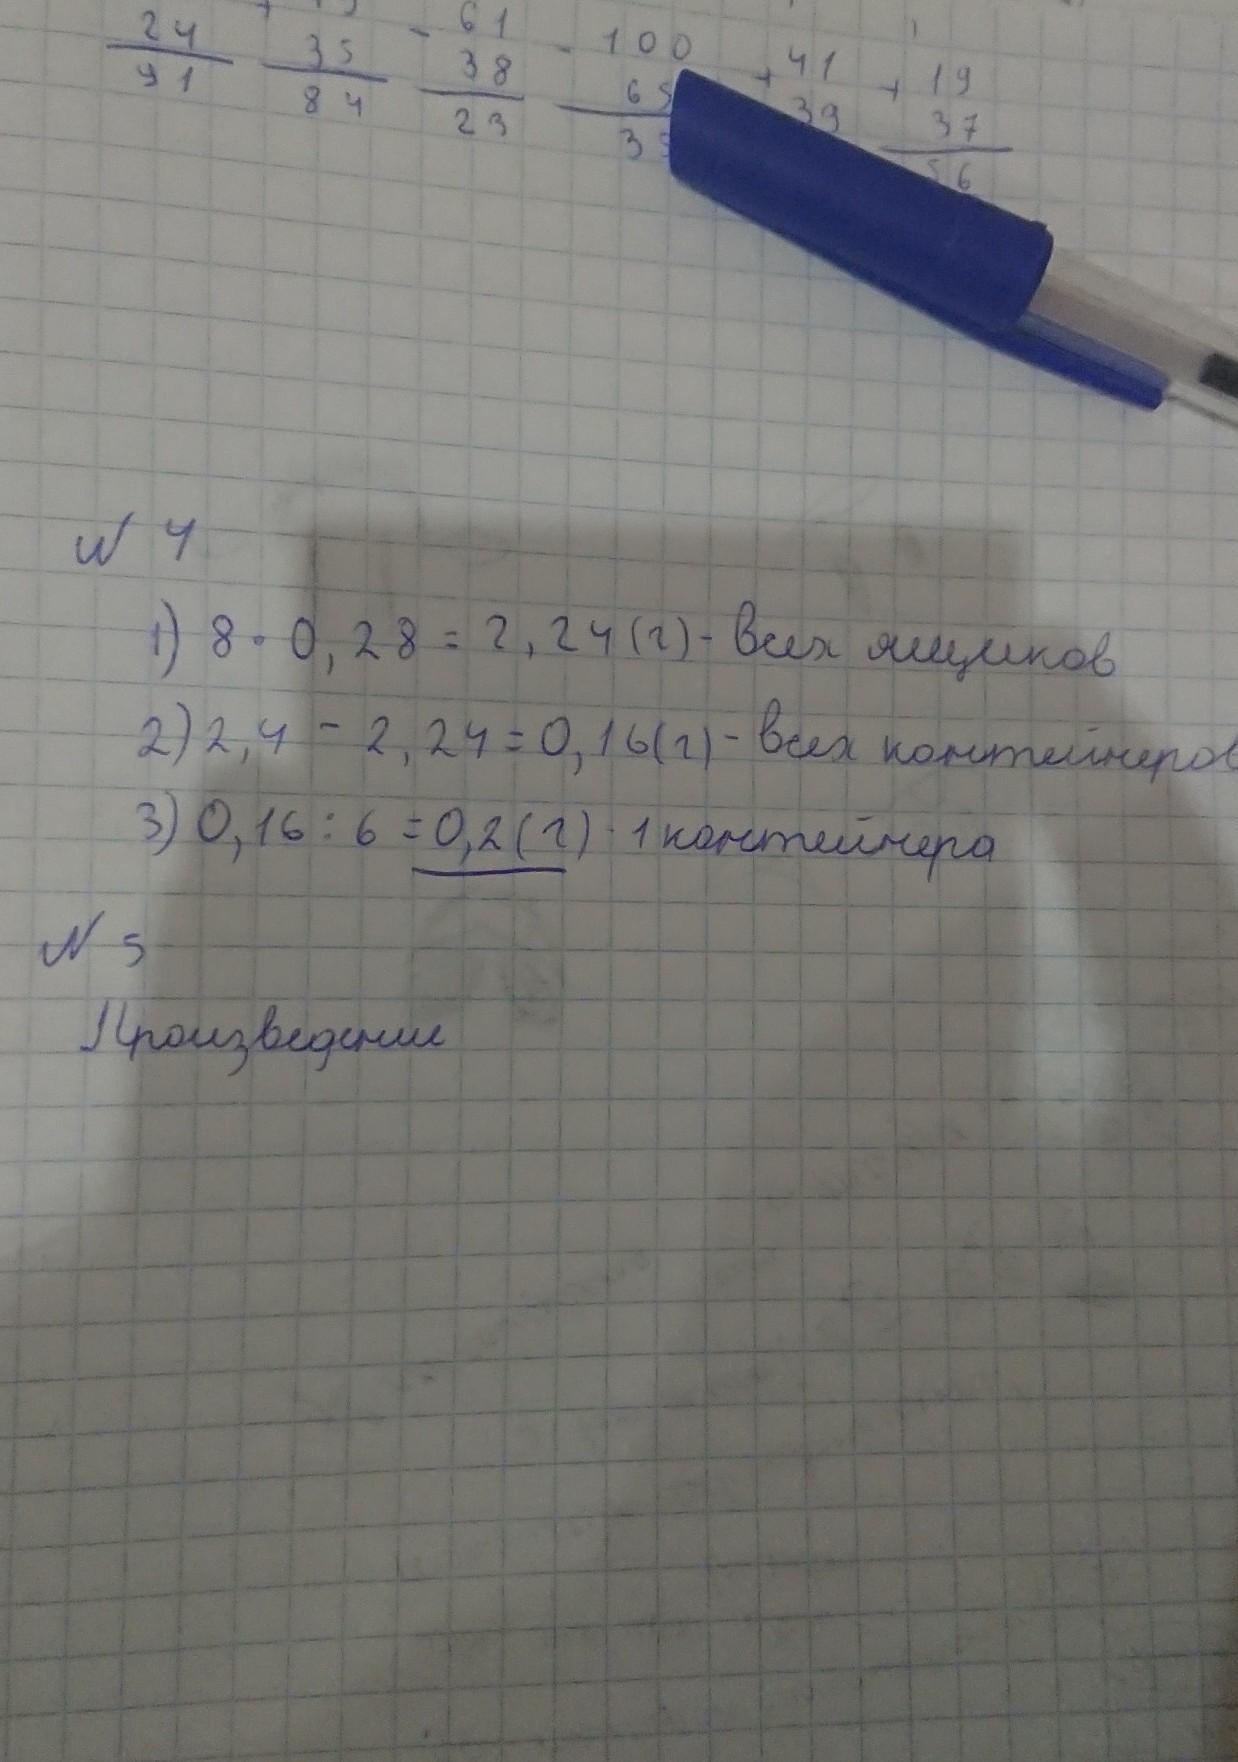 24 35 - 61 - 100 + 41 + 19
91 84 38 6 39 37
23 3 56
N 4
1) 8 · 0,28 = 2,24(г) - всех ящиков
2) 2,4 - 2,24 = 0,16(г) - всех контейнеров
3) 0,16 : 6 = 0,2(г) · 1 контейнера
N 5
Произведение